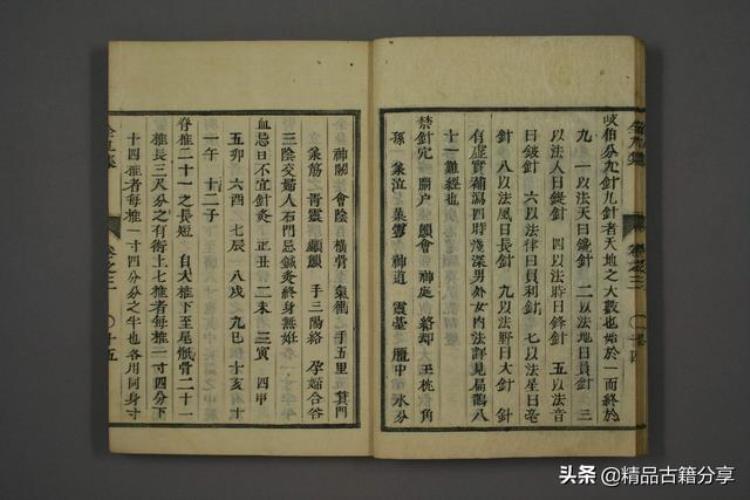 岐伯分九針九針者天地之大數也始於一而終於
九 一以法天曰鑱針 二以法地曰員針 三
以法人曰鍉針 四以法時曰鋒針 五以法音
曰鈹針 六以法律曰員利針 七以法星曰毫
針 八以法風曰長針 九以法野曰大針 針
有虛實補瀉四時淺深男外女内法詳見扁鵲八
十一難經也
禁針穴 腦户 顖會 神庭 絡却 玉枕 角
孫 承泣 承靈 神道 靈臺 膻中 水分
卷之三
神闕 會陰 橫骨 氣衝 手五里 箕門
承筋 青靈 顱顖 手三陽絡 孕婦合谷
三陰交婦人石門忌鍼灸終身無姙
血忌日不宜針灸 正丑 二未 三寅 四申
五卯 六酉 七辰 八戌 九巳 十亥 十
一午 十二子
脊椎二十一之長短 自大椎下至尾骶骨二十一
椎長三尺分之有術上七椎者每椎一寸四分下
十四椎者每椎一寸四分分之午也各用同身寸
卷之三 十五
头条 @精品古籍分享